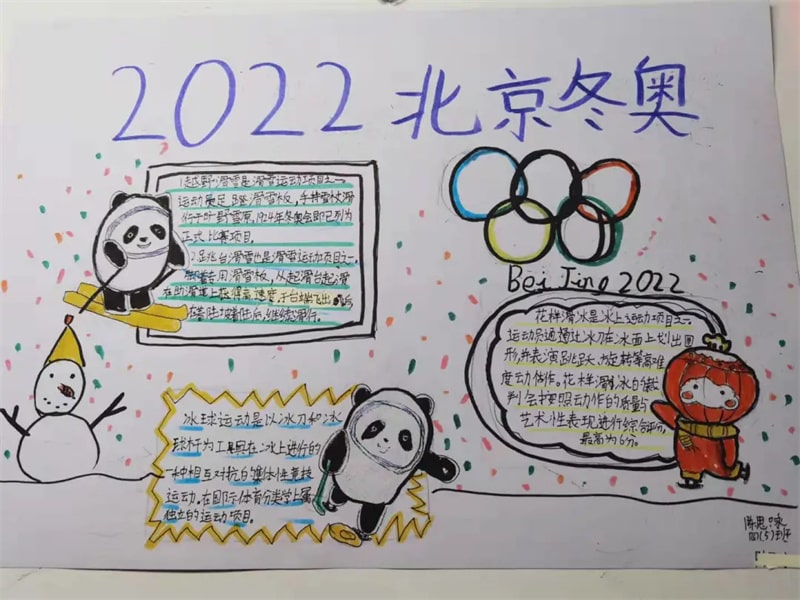 2022北京冬奥
1越野滑雪是滑雪运动项目之一
运动员足踏滑雪板，手持雪杖滑
行于旷野雪原，1924年冬奥会即已列为
正式比赛项目。
2.跳台滑雪也是滑雪运动项目之一
用滑雪板，从起滑台起滑
在助滑道上获得高速度，于台端飞出
后，继续滑行。
Bei Jing 2022
花样滑冰是冰上运动项目之一
运动员通过冰刀在冰面上划出图
形，并表演跳跃、旋转等高难
度动作。花样滑冰的裁
判会按照动作的质量与
艺术性表现进行综合评分，
最高为6分。
冰球运动是以冰刀和冰
球杆为工具在冰上进行的
一种相互对抗的集体性竞技
运动。在国际体育分类学上属
独立的运动项目。
陈思
四(5)班